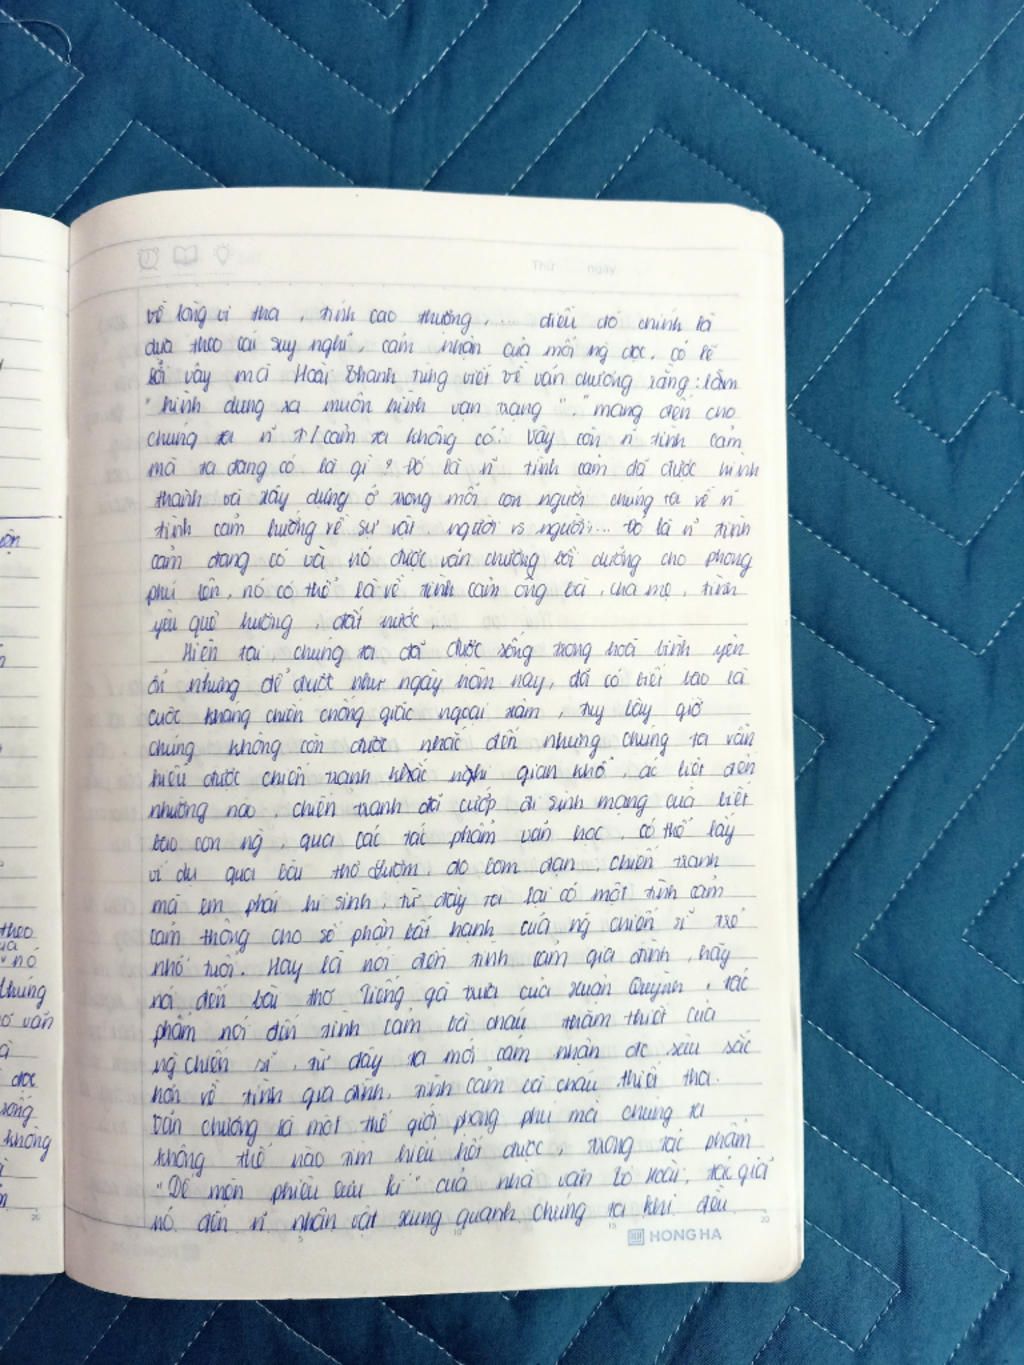 Thứ ngày
về lòng vị tha, tính cao thượng, ... điều đó chính là
dựa theo cái suy nghĩ, cảm nhận của mỗi ng đọc. có lẽ
bởi vậy mà Hoài Thanh từng viết về văn chương rằng: lắm
"hình dung ra muôn hình vạn trạng", "mang đến cho
chúng ta n~ t/cảm ta không có". Vậy còn n~ tình cảm
mà ta đang có là gì? Đó là n~ tình cảm đã được hình
thành và xây dựng ở trong mỗi con người chúng ta về n~
tình cảm hướng về sự vật, người vs người... Đó là n~ tình
cảm đang có và nó được văn chương bồi dưỡng cho phong
phú lên, nó có thể là về tình cảm ông bà, cha mẹ, tình
yêu quê hương, đất nước..
Hiện tại, chúng ta đã được sống trong hoà bình yên
ổn nhưng để được như ngày hôm nay, đã có biết bao là
cuộc kháng chiến chống giặc ngoại xâm, tuy bây giờ
chúng không còn được nhắc đến nhưng chúng ta vẫn
hiểu được chiến tranh khắc nghi gian khổ, ác liệt đến
nhường nào, chiến tranh đã cướp đi sinh mạng của biết
bao con ng, qua các tác phẩm văn học, có thể lấy
ví dụ qua bài thơ Lượm, do bom đạn, chiến tranh
mà em phải hi sinh, từ đây ta lại có một tình cảm
cảm thông cho số phận bất hạnh của ng chiến sĩ trẻ
nhỏ tuổi. Hay là nói đến tình cảm gia đình, hãy
nói đến bài thơ Tiếng gà trưa của Xuân Quỳnh, tác
phẩm nói đến tình cảm bà cháu thắm thiết của
ng chiến sĩ, từ đây ta mới cảm nhận đc sâu sắc
hơn về tình gia đình, tình cảm bà cháu thiết tha.
Văn chương là một thế giới phong phú mà chúng ta
không thể nào tìm hiểu hết được, trong tác phẩm
"Dế mèn phiêu lưu kí" của nhà văn Tô Hoài, tác giả
nó đến n~ nhân vật xung quanh chúng ta khi đều
HONG HA